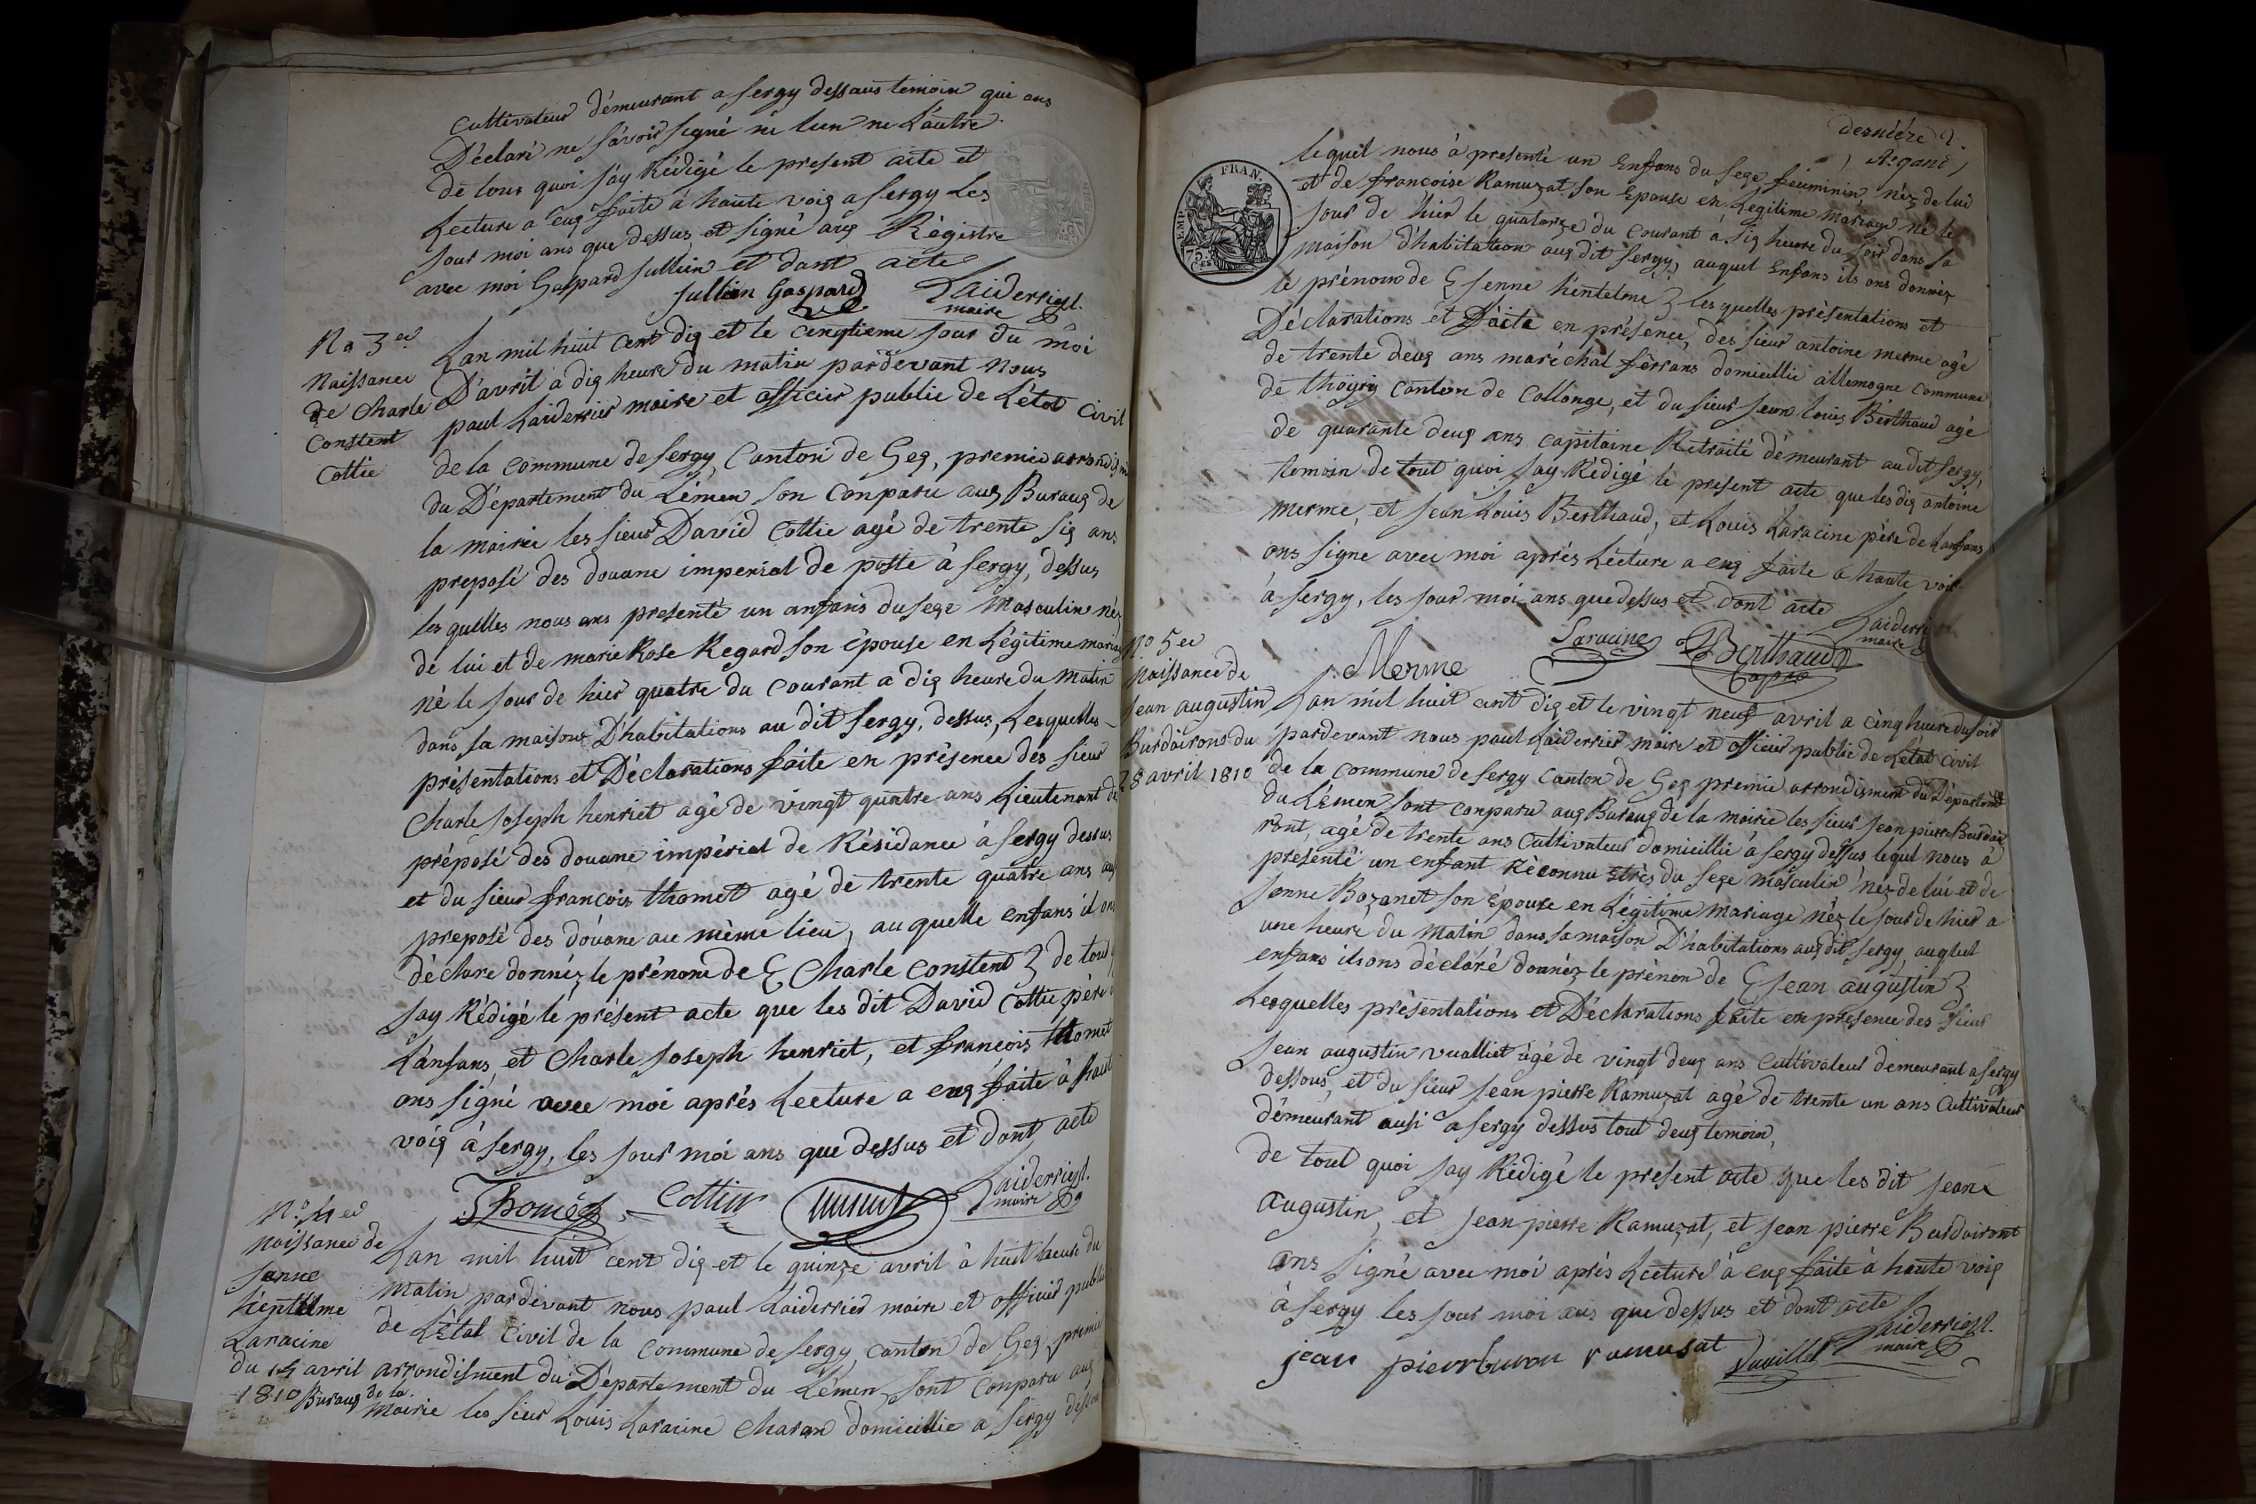 cultivateur démeurant a sergy dessous temoin qui ons
Déclaré ne savoir signé ni lun ne L'autre
de tous quoi j'ay Rédigé le present acte et
Lecture a eux faite à haute voix a sergy Les
jour moi ans que dessus et signé aux Régistre
avec moi Gaspard Jullien et dont acte
Jullien Gaspard Laiderrier
maire
No 3ee
Naissance
de Charle
Constent
Cottie
Lan mil huit cent dix et le cinqtieme jour du moi
D'avril a dix heure du matin pardevant nous
paul Laiderrier maire et officier public de L'état civil
de la commune de sergy, Canton de Gex, premier arrondism
du Département du Lémen son conparu aux Buraux de
la mairie les sieur David Cottie agé de trente six ans
preposé des douane imperial de poste à sergy, dessus
les quelles nous ons presenté un anfans du sexe Masculin néz
de lui et de marie Rose Regard son épouse en Légitime mariag
né le jour de hier quatre du courant a dix heure du matin
dans sa maison D'habitations au dit sergy, dessus, Lesquelles
présentations et Déclarations faite en présence des sieur
Charle Joseph henriet agé de vingt quatre ans Lieutenant de
préposé des douane impérial de Résidance à sergy dessus
et du sieur françois thomet agé de trente quatre ans aux
preposé des douane au mème lieu, au quelle enfans il ons
déclare donnéz le prénom de Charle Constent de tout
jay Rédigé lé présent acte que les dit David Cottie père
L'anfans, et Charle Joseph henriet, et françois thomet
ons signé avec moi aprés Lecture a eux faite à haut
voix à sergy, les jour moi ans que dessus et dont acte
Thomet Cottier Laiderrier
maire
No 4ee
Naissance de
Jenne
hentelme
Laracine
du 14 avril
1810
Lan mil huit cent dix et le quinze avril à huit heure du
Matin pardevant nous paul Laiderrier maire et officier public
de L'état civil de la commune de sergy, canton de Gex, premie
arrondisment du Département du Lémen sont conparu aux
Buraux de la
Mairie les sieur Louis Laracine Charon domicillie a sergy dessou
dernière 2.
Argand
EMP. FRAN.
75 CES
lequel nous à presenté un Enfans du sexe féuminin néz de lui
et de francoise Ramuzat son Epouse en Légitime Mariage né le
jour de hier le quatorze du courant à six heure du soir dans sa
maison d'habitation aux dit sergy, auquel Enfans ils ons donnéz
le prénom de Jenne hentelme les quelles présentations et
Déclarations et D'acte en présence, des sieur antoine merme agé
de trente deux ans maréchal ferrans domicillié allemogne commune
de thoyry canton de Collonge, et du sieur jean louis Berthaud agé
de quarante deux ans capitaine Retraité démeurant au dit sergy,
temoin de tout quoi jay Rédigé le present acte que les dix antoine
merme, et jean Louis Berthaud, et Louis Laracine père de Lanfans
ons signe avec moi aprés Lecture a eux faite a haute voix
à sergy, les jour moi ans que dessus et dont acte
Merme Laracine Berthaud Laiderri
Capne maire
No 5ee
Naissance de
jean augustin
Burdairons du
28 avril 1810
Lan mil huit cent dix et le vingt neuf avril a cinq heure du soir
pardevant nous paul Laiderrier maire et officier public de L'etat civil
de la commune de sergy canton de Gex premie arrondisment du Départemt
du Lémen sont conparu aux Buraux de la mairie les sieur jean pierre Burdai
ront, agé de trente ans cultivateur domicillié à sergy dessus lequl nous à
presenté un enfant Réconnu etres du sexe masculin néz de lui et de
Jenne Bozonet son épouse en Légitime mariage néz le jour de hier a
une heure du Matin dans sa maison D'habitations aux dit sergy auqleul
enfans ils ons déclaré donnéz le prénon de jean augustin
Lesquelles présentations et Déclarations faite en presence des sieur
jean augustin vualliet àgé de vingt deux ans cultivateur demeurant a sergy
dessous, et du sieur jean pierre Ramuzat agé de trente un ans cultivateur
démeurant ausi a sergy dessus tout deux temoin,
de tout quoi jay Rédigé le present acte que les dit jean
augustin, et jean pierre Ramuzat, et jean pierre Burdairont
ons signé avec moi aprés Lecture à eux faite à haute voix
à sergy les jour moi ans que dessus et dont acte
jean pierr ramusat Vuaillet Laiderrier
maire